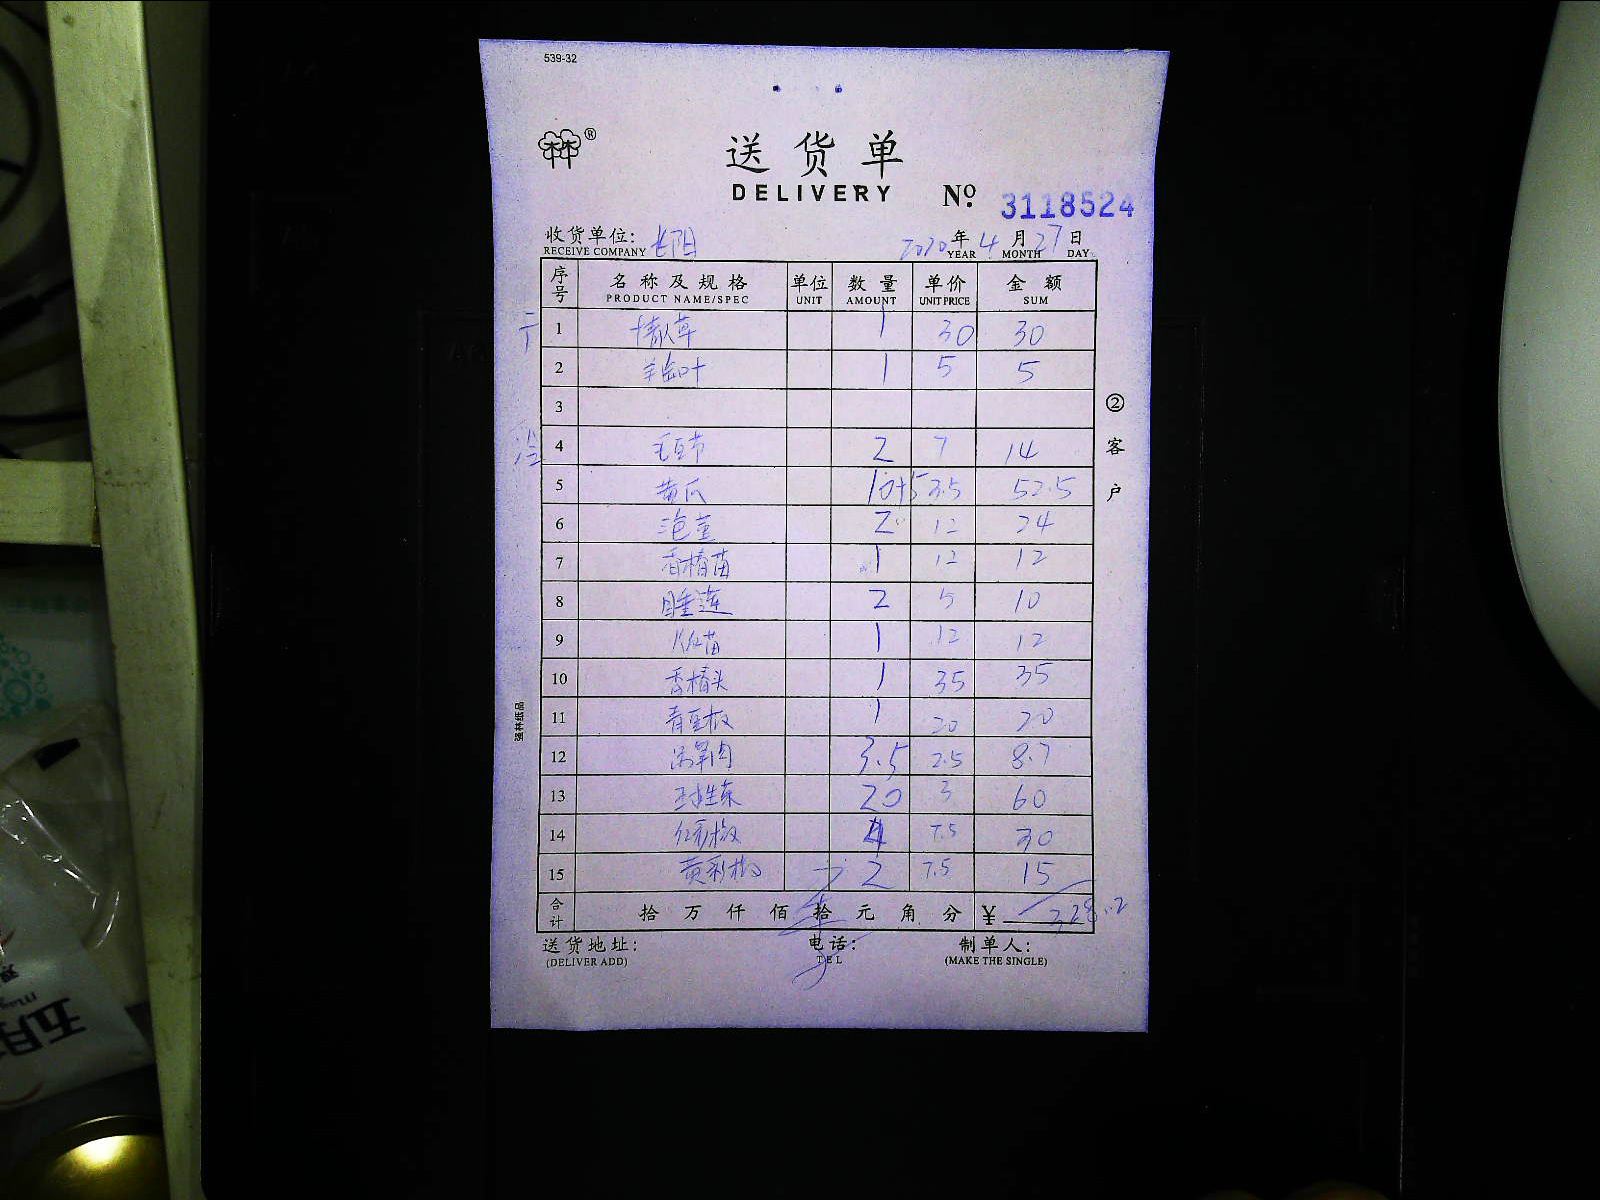 539-32
林林®
送货单
DELIVERY No. 3118524
收货单位: 长阳 2020年4月27日
RECEIVE COMPANY YEAR MONTH DAY
序号 名称及规格 单位 数量 单价 金额
PRODUCT NAME/SPEC UNIT AMOUNT UNIT PRICE SUM
1 情人草 1 30 30
2 羊齿叶 1 5 5
3
4 毛豆节 2 7 14
5 黄瓜 10+5 3.5 52.5
6 2 12 24
7 香椿苗 1 12 12
8 睡莲 2 5 10
9 苗 1 12 12
10 香椿头 1 35 35
11 青豆板 1 20 20
12 3.5 2.5 8.7
13 球生菜 20 3 60
14 红彩椒 4 7.5 30
15 黄彩椒 2 7.5 15
合计 拾万仟佰拾元角分 ¥ 328.2
送货地址: 电话: 制单人:
(DELIVER ADD) TEL (MAKE THE SINGLE)
②客户
强林纸品
五月